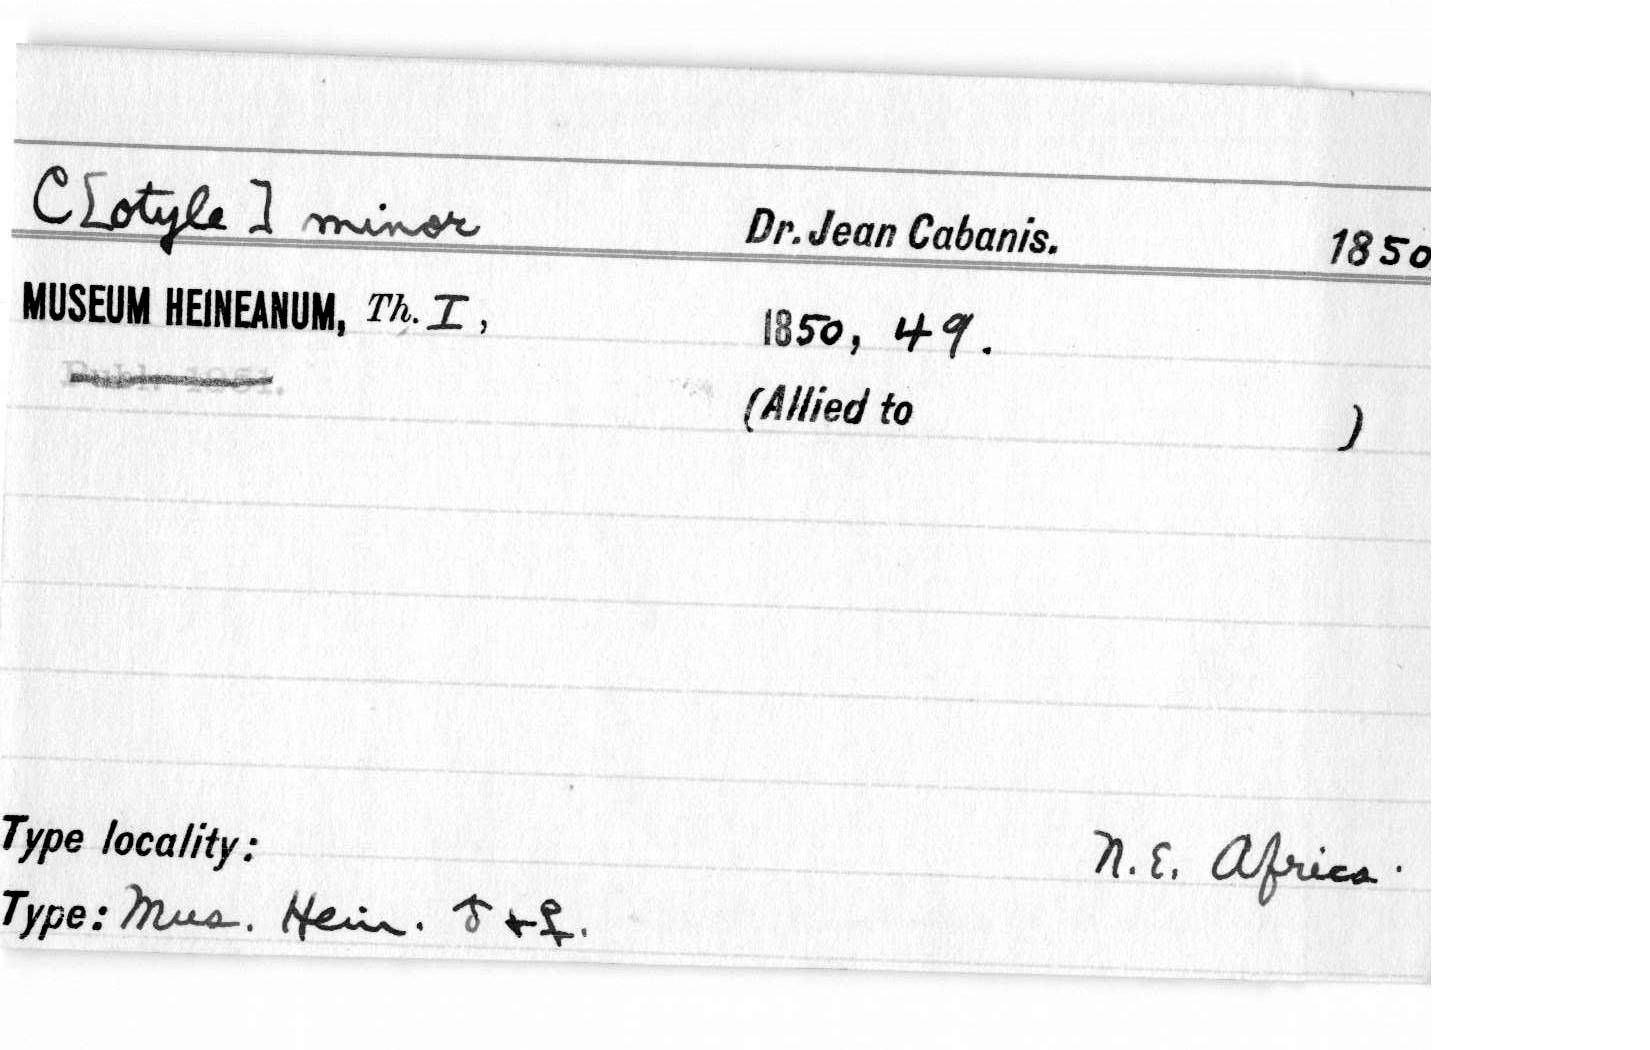 C[otyle] minor Dr. Jean Cabanis. 1850
MUSEUM HEINEANUM, Th. I, 1850, 49.
Publ. 1851.
(Allied to )
Type locality: N.E. Africa.
Type: Mus. Hein. ♂ + ♀.